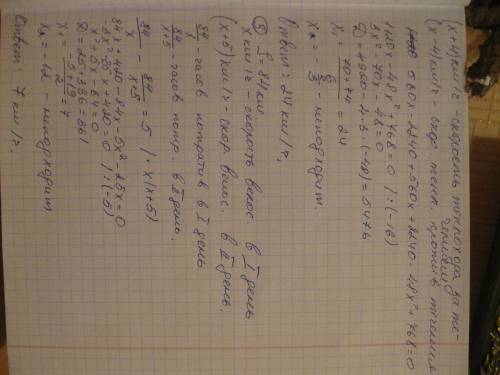 (x+4) км/ч - скорость теплохода за те-
чением
(x-4) км/ч - скор. тепл. против течения
560x - 2240 + 560x + 2240 - 48x² + 768 = 0
1120x - 48x² + 768 = 0 | : (-16)
3x² - 70x - 48 = 0
D = 4900 - 4·3·(-48) = 5476
x₁ = (70+74)/6 = 24
x₂ = -2/3 - не подходит.
Ответ: 24 км/ч.
⑤ S = 84 км
x км/ч - скорость велос. в I день
(x+5) км/ч - скор. велос. в II день.
84/x - часов потратил в I день
84/(x+5) - часов потр. в II день.
84/x - 84/(x+5) = 5 | · x(x+5)
84x + 420 - 84x - 5x² - 25x = 0
-5x² - 25x + 420 = 0 | : (-5)
x² + 5x - 84 = 0
D = 25 + 336 = 361
x₁ = (-5+19)/2 = 7
x₂ = -12 - не подходит
Ответ: 7 км/ч.